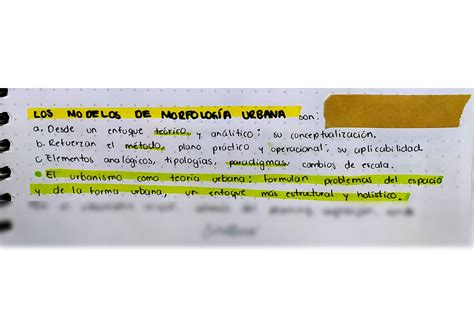 LOS MODELOS DE MORFOLOGÍA URBANA son:
a. Desde un enfoque teórico y analítico: su conceptualización.
b. Refuerzan el método, plano práctico y operacional: su aplicabilidad
c Elementos analógicos, tipologías, paradigmas, cambios de escala.
• El urbanismo como teoría urbana: formulan problemas del espacio
y de la forma urbana, un enfoque más estructural y holístico.